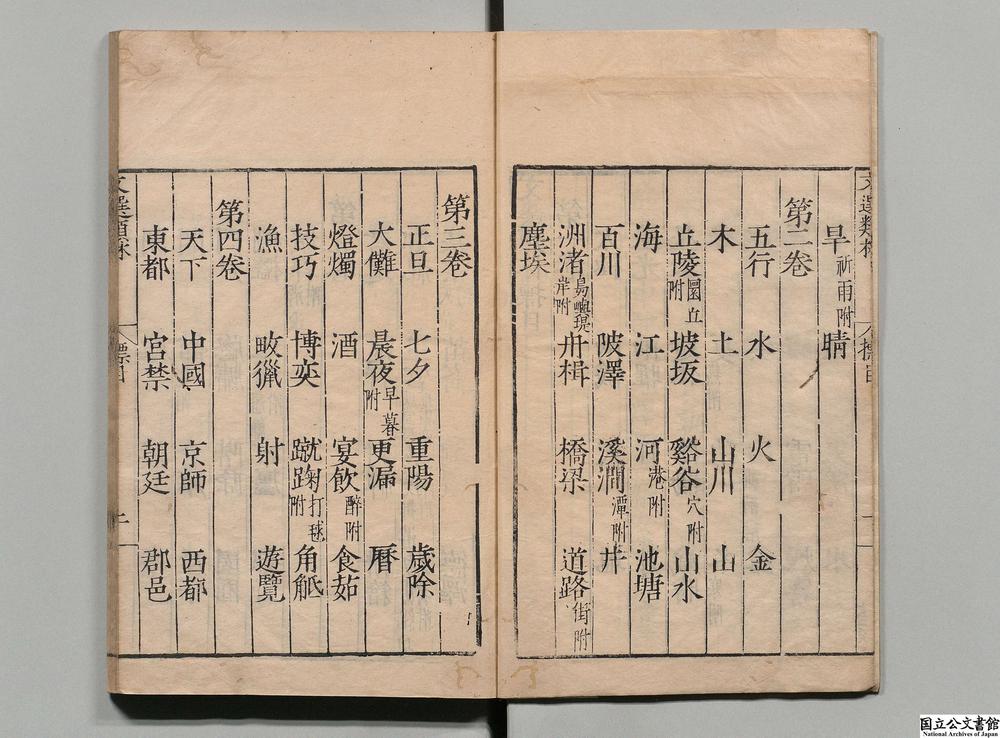 旱 祈雨附 晴
第二卷
五行 水 火 金
木 土 山川 山
丘陵 圜丘附 坡坂 谿谷 穴附 山水
海 江 河 港附 池塘
百川 陂澤 溪澗 潭附 井
洲渚 島嶼堤岸附 舟楫 橋梁 道路 街附
塵埃
第三卷
正旦 七夕 重陽 歲除
大儺 晨夜 早暮附 更漏 曆
燈燭 酒 宴飲 醉附 食茹
技巧 博奕 蹴踘 打毬附 角觝
漁 畋獵 射 遊覽
第四卷
天下 中國 京師 西都
東都 宮禁 朝廷 郡邑
標目
標目
国立公文書館
National Archives of Japan